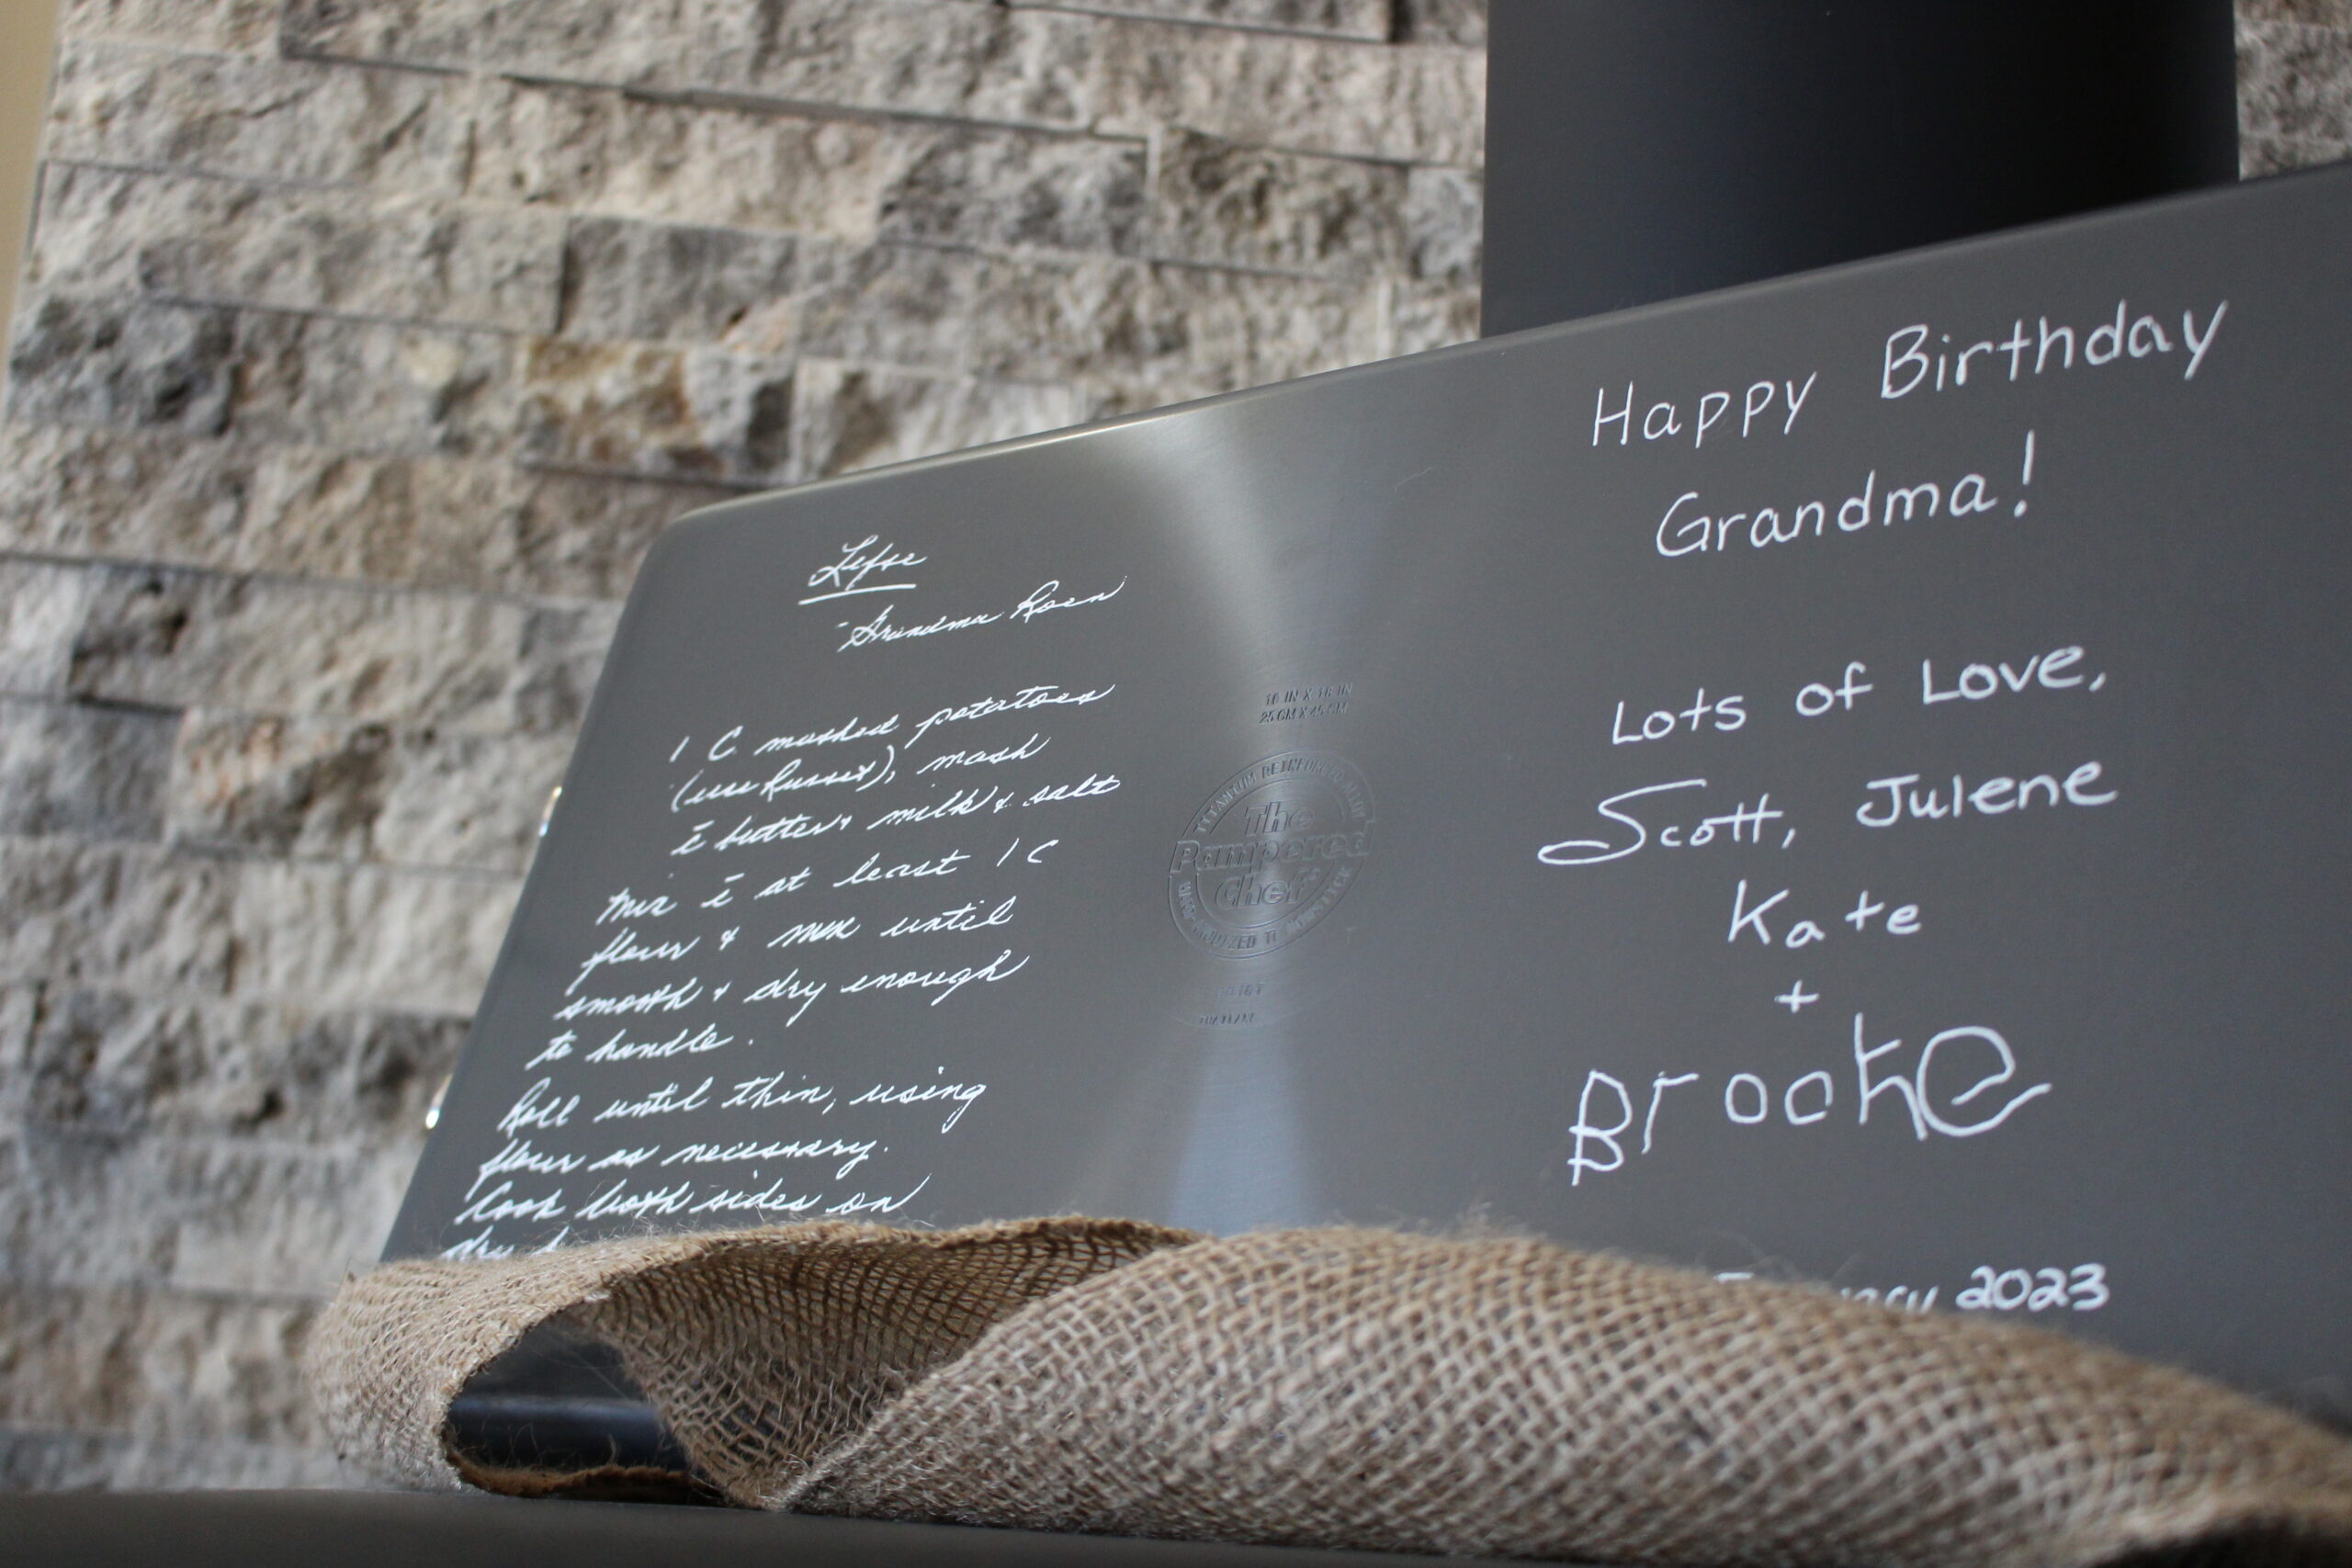 Lefse
- Grandma Rosn
1 C mashed potatoes
(use Russet), mash
c̄ butter, milk & salt
Mix c̄ at least 1 C
flour & mix until
smooth & dry enough
to handle.
Roll until thin, using
flour as necessary.
Cook both sides on
dry
10 IN X 18 IN
25 CM X 45 CM
TITANIUM REINFORCED
The
Pampered
Chef
Happy Birthday
Grandma!
Lots of Love,
Scott, Julene
Kate
+
Brooke
2023